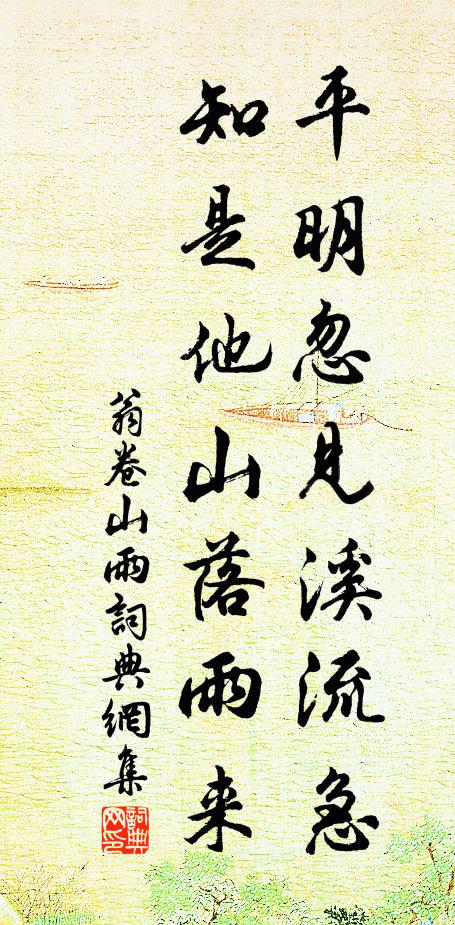 平明忽見溪流急
知是他山落雨来
翁卷山雨詞典網集
詞典網印